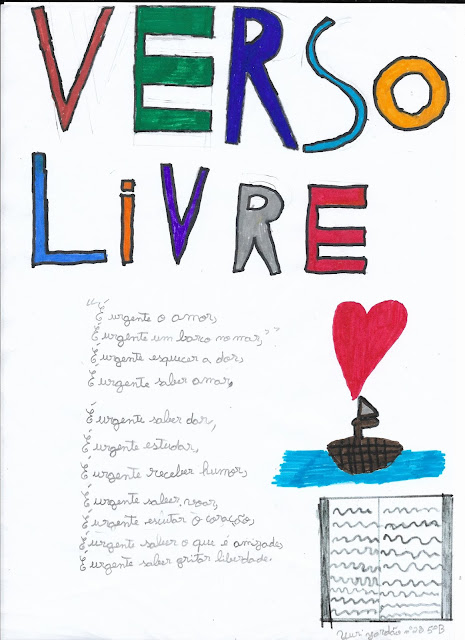 VERSO
LIVRE
"É urgente o amor,
É urgente um barco no mar,"
É urgente esquecer a dor,
É urgente saber amar.
É urgente saber dar,
É urgente estudar,
É urgente receber humor,
É urgente saber voar,
É urgente escutar o coração,
É urgente saber o que é amizade,
É urgente saber gritar liberdade.
Yuri nº28 5ºB